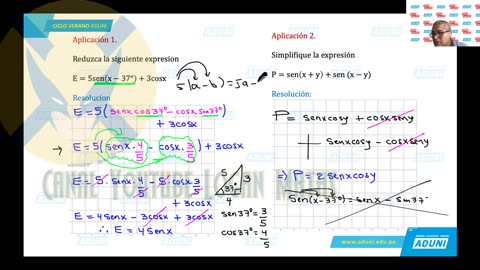 CICLO VERANO ADUNI
ADUNI
Aplicación 1.
Reduzca la siguiente expresion
E = 5sen(x − 37°) + 3cosx
5(a-b)=5a-
Resolucion
E = 5(senx cos37°-cosx.sm37°)
+ 3cosx
→ E = 5(senx.4/5 - cosx.3/5) + 3cosx
E = 5.senx.4/5 - 5.cosx.3/5
+ 3cosx
5
3
37°
4
E = 4senx - 3cosx + 3cosx
∴ E = 4senx
sen37° = 3/5
cos37° = 4/5
Aplicación 2.
Simplifique la expresión
P = sen(x + y) + sen (x − y)
Resolución:
P = senxcosy + cosxseny
+ senxcosy - cosxseny
⇒ P = 2senxcosy
Sen(x-37°) = senx - sm37°
www.aduni.edu.pe
ADUNI